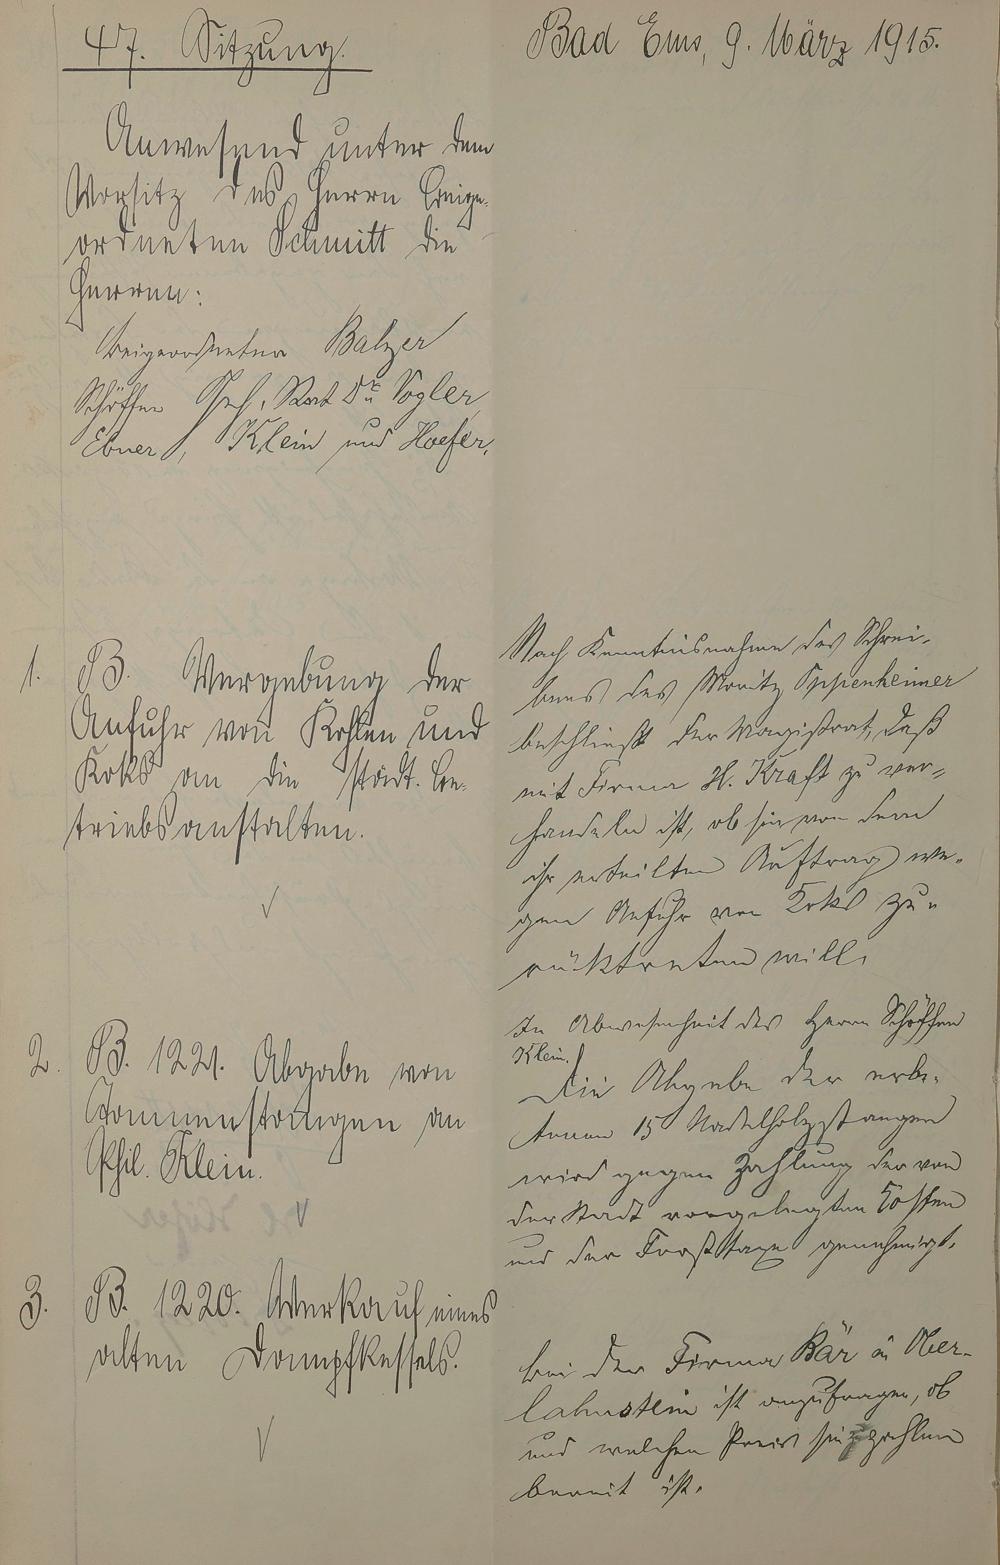 47. Sitzung.
Bad Ems, 9. März 1915.
Anwesend unter dem
Vorsitz des Herrn Beige-
ordneten Schmitt die
Herren:
Beigeordneter Balzer
Schöffen Geh. Rat Dr. Vogler,
Ebner, Klein und Hoefer.
1. B. Vergebung der
Anfuhr von Kohlen und
Koks an die städt. Be-
triebsanstalten.
Nach Kenntnisnahme des Schrei-
bens des Moritz Oppenheimer
beschließt der Magistrat, daß
mit Firma H. Kraft zu ver-
handeln ist, ob sie von dem
ihr erteilten Auftrag we-
gen Anfuhr von Koks zu-
rücktreten will.
2. B. 1221. Abgabe von
Tannenstangen an
Phil. Klein.
In Abwesenheit des Herrn Schöffen
Klein.
Die Abgabe der erbe-
tenen 15 Nadelholzstangen
wird gegen Zahlung der von
der Stadt vorgelegten Kosten
und der Forsttaxe genehmigt.
3. B. 1220. Verkauf eines
alten Dampfkessels.
Bei der Firma Bär in Ober-
lahnstein ist anzufragen, ob
und welchen Preis sie zu zahlen
bereit ist.